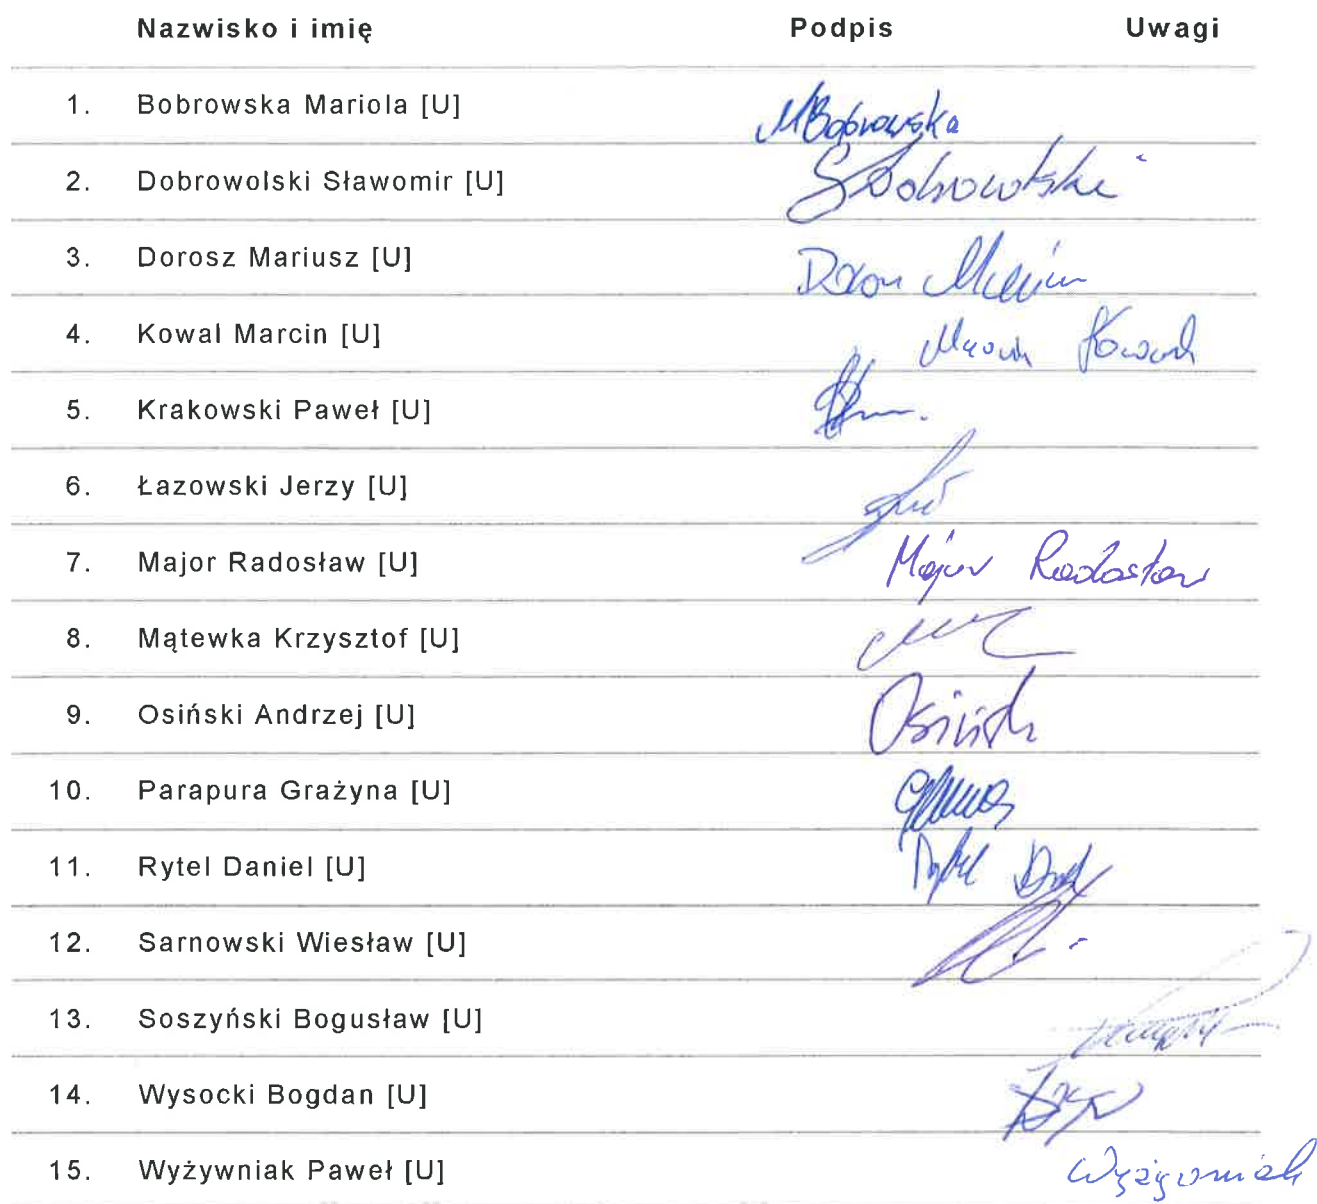 Nazwisko i imię Podpis Uwagi
1. Bobrowska Mariola [U] MBobrowska
2. Dobrowolski Sławomir [U] SDobrowolski
3. Dorosz Mariusz [U]
4. Kowal Marcin [U] Marcin Kowal
5. Krakowski Paweł [U]
6. Łazowski Jerzy [U]
7. Major Radosław [U] Major Radosław
8. Mątewka Krzysztof [U]
9. Osiński Andrzej [U] Osiński
10. Parapura Grażyna [U]
11. Rytel Daniel [U]
12. Sarnowski Wiesław [U]
13. Soszyński Bogusław [U]
14. Wysocki Bogdan [U]
15. Wyżywniak Paweł [U] Wyżywniak